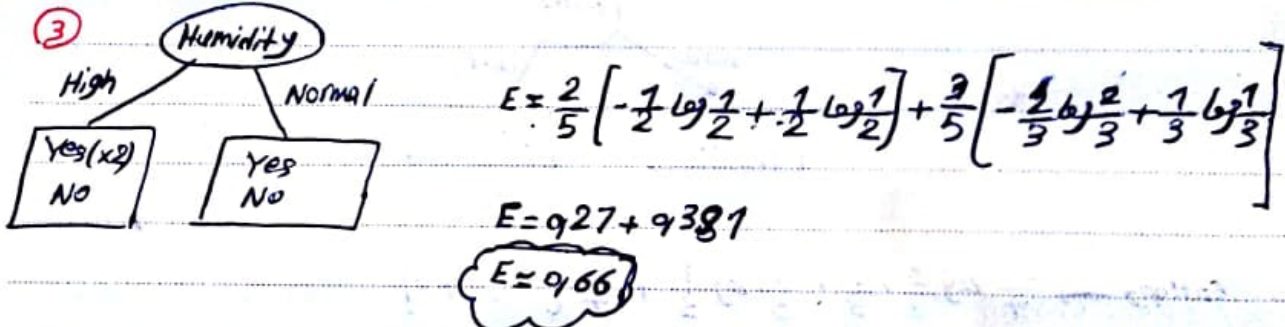 3
Humidity
High
Normal
Yes(x2)
No
Yes
No
E = 2/5 [ -1/2 log 1/2 + 1/2 log 1/2 ] + 3/5 [ -2/3 log 2/3 + 1/3 log 1/3 ]
E = 0,27 + 0,381
E ≃ 0,66